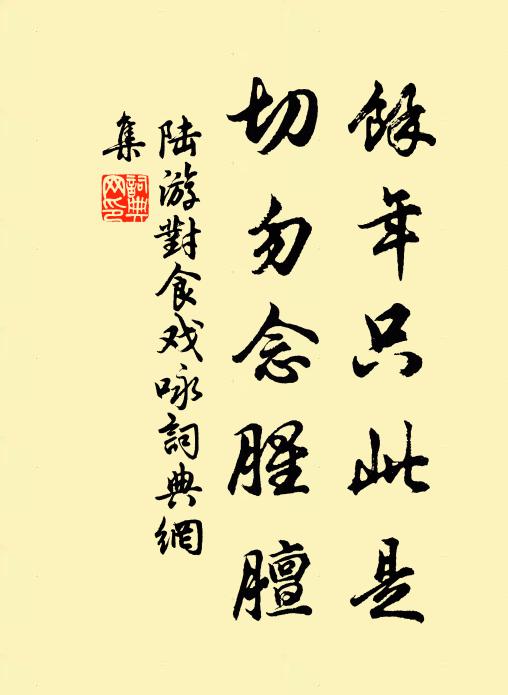 餘年只此是
切勿念腥膻
陸游對食戏咏詞典網
集
詞典
网印